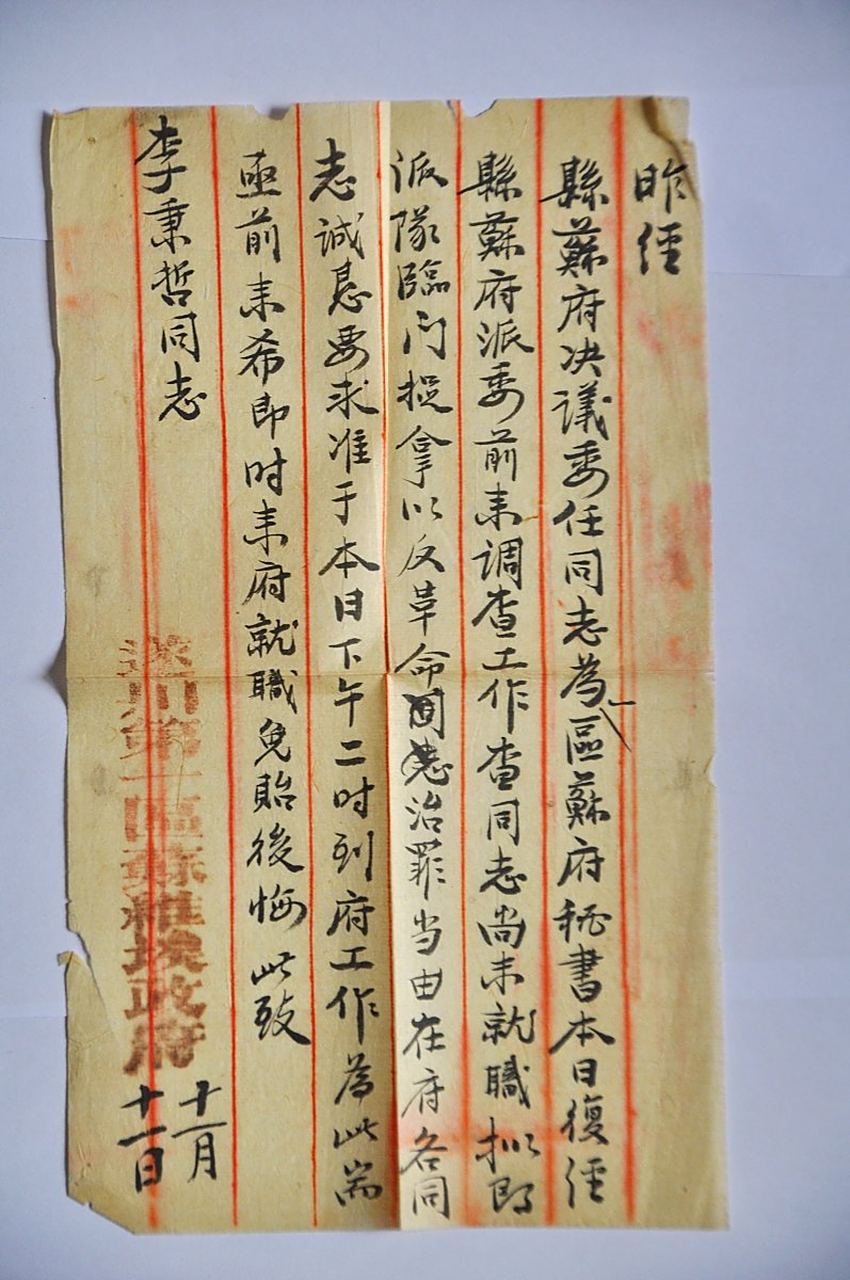 昨经
縣蘇府决議委任同志為區蘇府秘書本日復经
縣蘇府派委前来调查工作查同志尚未就職拟即
派隊臨门捉拿以反革命治罪当由在府各同
志诚恳要求准于本日下午二时到府工作為此耑
函前来希即时来府就職免貽後悔 此致
李秉哲同志
遂川第一區蘇維埃政府
十一月
十一日